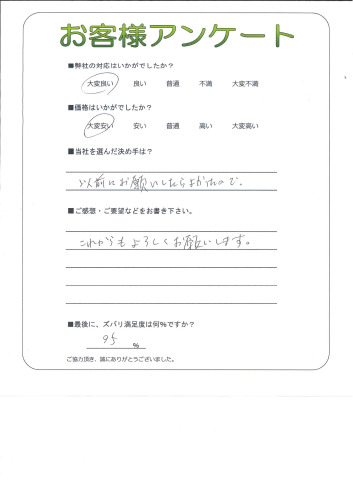 お客様アンケート
■弊社の対応はいかがでしたか?
大変良い 良い 普通 不満 大変不満
■価格はいかがでしたか?
大変安い 安い 普通 高い 大変高い
■当社を選んだ決め手は?
以前にお願いしたらよかたので、
■ご感想・ご要望などをお書き下さい。
これからもよろしくお願いします。
■最後に、ズバリ満足度は何%ですか?
95 %
ご協力頂き、誠にありがとうございました。